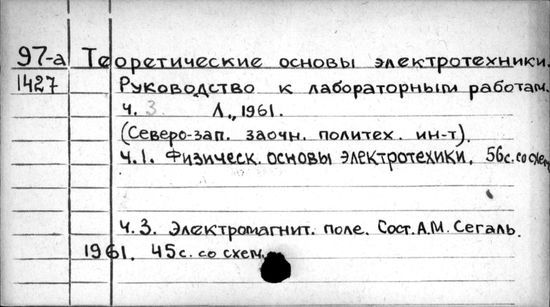 97-а Теоретические основы электротехники.
1427 Руководство к лабораторным работам.
Ч. 3 Л., 1961.
(Северо-зап. заочн. политех. ин-т).
Ч.1. Физическ. основы электротехики. 56с. со схем
Ч.3. Электромагнит. поле. Сост. А.М. Сегаль.
1961. 45с. со схем.